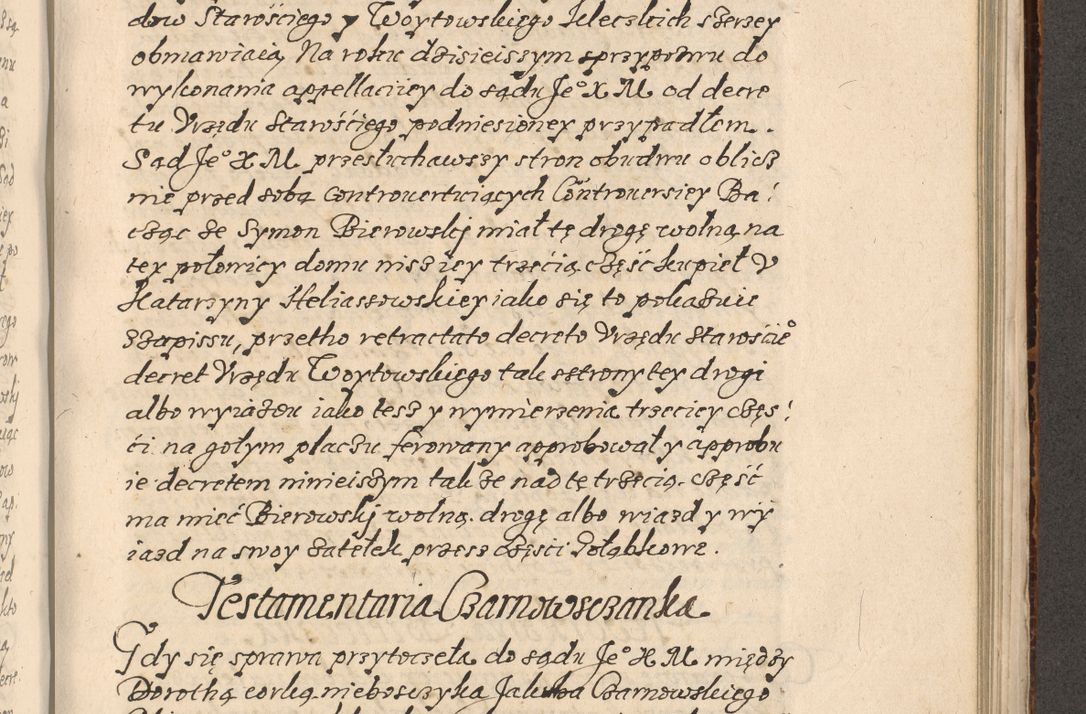 dow Starościego y Woytowskiego Kieleckich szerzey
obmawiaią, Na roku dzisieiszym sprzypozwu do
wykonania appellaciiey do sądu Je° X M od decre
tu Vrzędu Starościego podniesioney przypadłem.
Sąd Je° X M przesłuchawszy stron obudwu oblicz
nie przed sobą Controuertuiących Controuersiey Ba
cząc że Symon Bierowskj miał tę drogę wolną, na
tey połowicy domu nisz iey trzecią część kupieł V
Katarzyny Heliaszowskiey iako się to pokazuie
Szapissu, przetho retractato decreto Vrzędu Staroście°
decret Vrzędu Woytowskiego tak sstrony tey drogi
albo wyiazdu iako tesz y wymierzenia trzeciey częs
ći na gołym placzu ferowany approbował y approbu
ie decretem ninieiszym tak że nad tę trzecią część
ma mieć Bierowskj wolną drogę albo wiazd y wy
iazd na swoy zatełek przesz części Gołąbkowe.
Testamentaria Czarnowsczanka
Gdy się sprawa przytoczeła do sądu Je° X M między
Dorothą corką nieboszczyka Jakuba Czarnowskiego